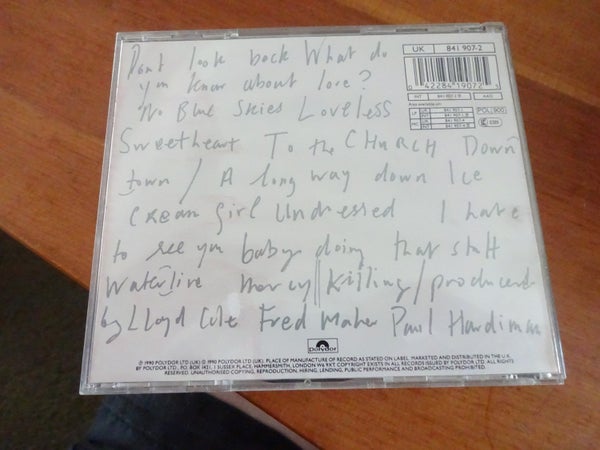 Dont look back What do
UK 841 907-2
you know about love?
0 42284 19072
No Blue Skies Loveless
INT 841 907-2 AAD
Also available on:
LP
MC
POL 900
Sweetheart To the CHURCH Down
town / A long way down Ice
cream girl Undressed I hate
to see you baby doing that stuff
Waterline Mercy Killing / produced
by LLoyd Cole Fred Maher Paul Hardiman
polydor
℗ 1990 POLYDOR LTD (UK) © 1990 POLYDOR LTD (UK). PLACE OF MANUFACTURE OF RECORD AS STATED ON LABEL. MARKETED AND DISTRIBUTED IN THE U.K.
BY POLYDOR LTD., P.O. BOX 1421, 1 SUSSEX PLACE, HAMMERSMITH, LONDON W6 9XT. COPYRIGHT EXISTS IN ALL RECORDS ISSUED BY POLYDOR LTD. ALL RIGHTS
RESERVED. UNAUTHORISED COPYING, REPRODUCTION, HIRING, LENDING, PUBLIC PERFORMANCE AND BROADCASTING PROHIBITED.